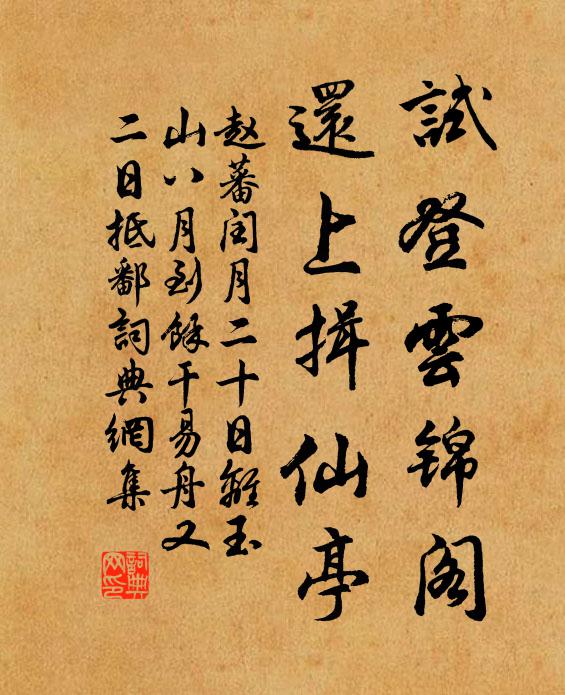 試登雲錦阁
還上揖仙亭
赵蕃闰月二十日離玉
山八月到餘干易舟又
二日抵鄱詞典網集
詞典
网印